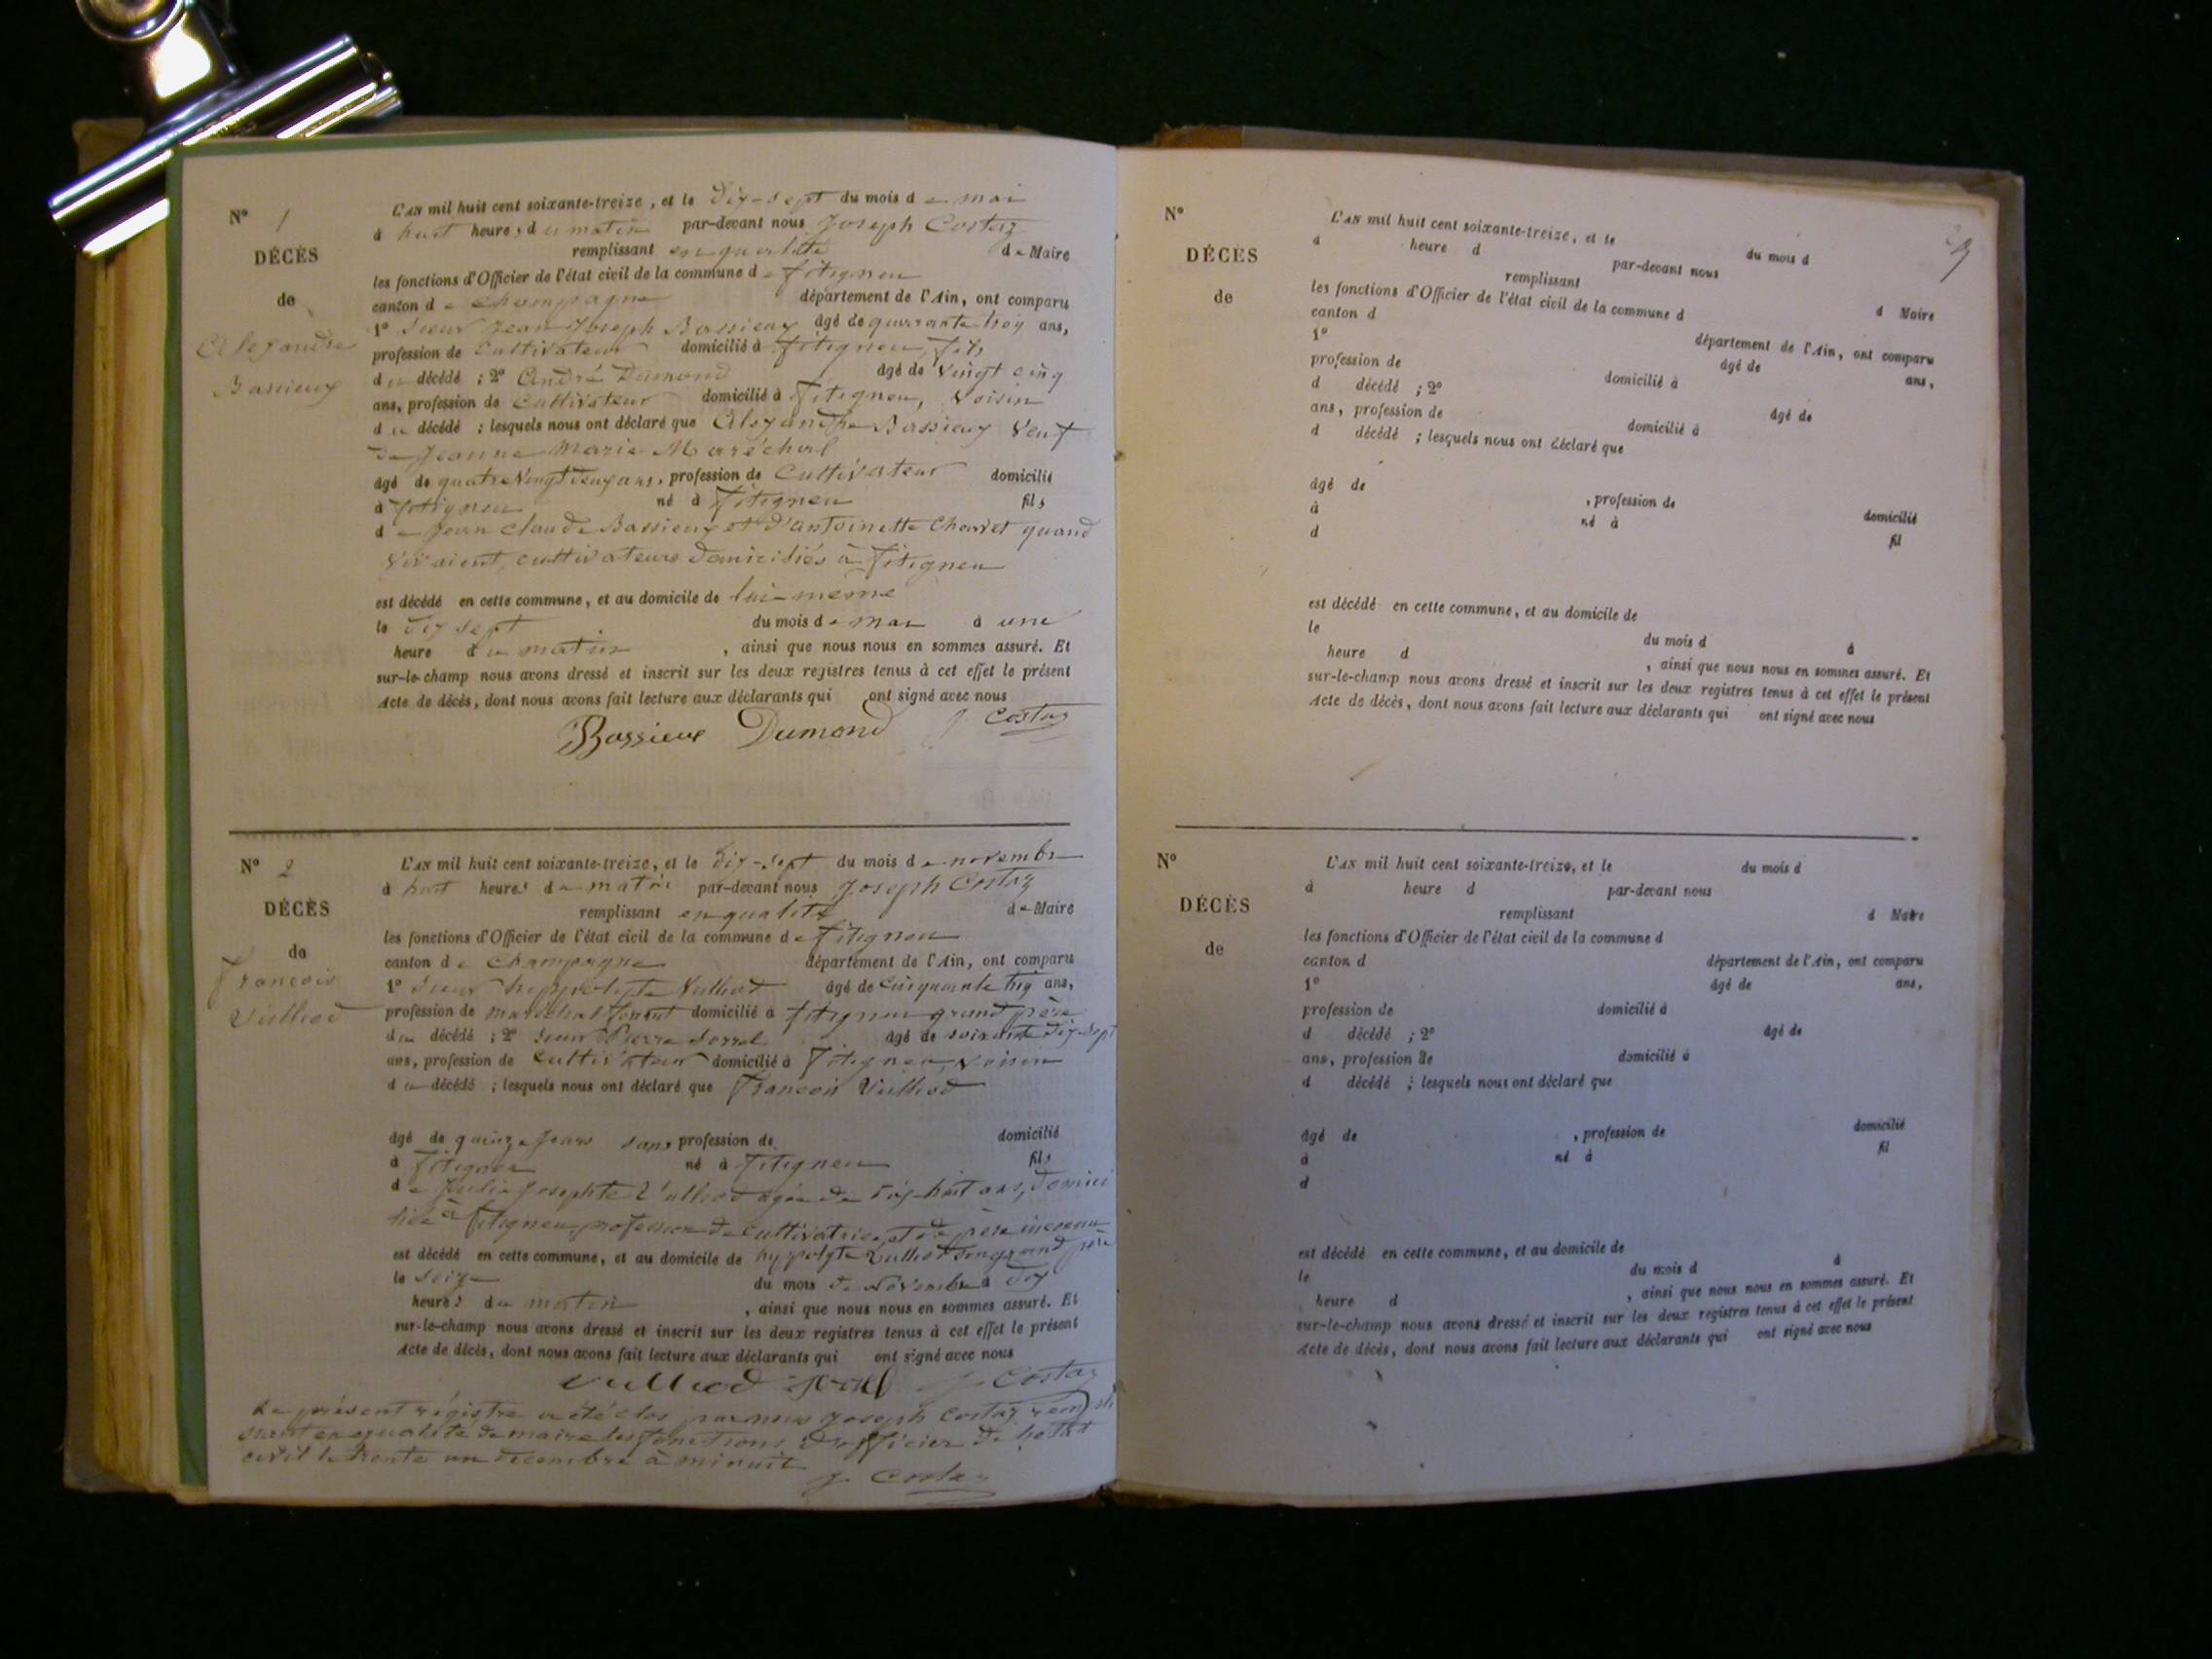 N° 1
DÉCÈS
de
Alexandre
Bassieux
L'AN mil huit cent soixante-treize, et le dix-sept du mois de mai
à huit heures du matin par-devant nous Joseph Costaz
remplissant en qualité de Maire
les fonctions d'Officier de l'état civil de la commune de fitigneu
canton de Champagne département de l'Ain, ont comparu
1° Sieur Jean Joseph Bassieux âgé de quarante trois ans,
profession de Cultivateur domicilié à fitigneu, fils
du décédé ; 2° André Dumond âgé de vingt cinq
ans, profession de Cultivateur domicilié à fitigneu, voisin
du décédé ; lesquels nous ont déclaré que Alexandre Bassieux veuf
de Jeanne Marie Maréchal
âgé de quatre vingt deux ans, profession de Cultivateur domicilié
à fitigneu né à fitigneu fils
de Jean Claude Bassieux et d'antoinette Charvet quand
vivaient, cultivateurs domiciliés à fitigneu
est décédé en cette commune, et au domicile de lui-même
le dix sept du mois de mai à une
heure du matin , ainsi que nous nous en sommes assuré. Et
sur-le-champ nous avons dressé et inscrit sur les deux registres tenus à cet effet le présent
Acte de décès, dont nous avons fait lecture aux déclarants qui ont signé avec nous
Bassieux Dumond J. Costaz
N° 2
DÉCÈS
de
françois
Vulliod
L'AN mil huit cent soixante-treize, et le dix-sept du mois de novembre
à huit heures du matin par-devant nous Joseph Costaz
remplissant en qualité de Maire
les fonctions d'Officier de l'état civil de la commune de fitigneu
canton de Champagne département de l'Ain, ont comparu
1° Sieur hyppolyte Vulliod âgé de cinquante trois ans,
profession de maréchal ferrant domicilié à fitigneu grand père
du décédé ; 2° Sieur Pierre âgé de soixante dix-sept
ans, profession de Cultivateur domicilié à fitigneu, voisin
du décédé ; lesquels nous ont déclaré que françois Vulliod
âgé de quinze jours sans profession de domicilié
à fitigneu né à fitigneu fils
de Julie Josephte Vulliod agée de dix-huit ans, domici
liée à fitigneu, profession de cultivatrice et de père inconnu
est décédé en cette commune, et au domicile de hyppolyte Vulliod son grand père
le seize du mois de Novembre à dix
heures du matin , ainsi que nous nous en sommes assuré. Et
sur-le-champ nous avons dressé et inscrit sur les deux registres tenus à cet effet le présent
Acte de décès, dont nous avons fait lecture aux déclarants qui ont signé avec nous
Vulliod J. Costaz
Le présent régistre a été clos par nous Joseph Costaz rempli
ssant en qualité de maire les fonctions d'officier de l'état
civil le trente un decembre à minuit
J. Costaz
N°
DÉCÈS
de
L'AN mil huit cent soixante-treize, et le du mois d
à heure d par-devant nous
remplissant d Maire
les fonctions d'Officier de l'état civil de la commune d
canton d département de l'Ain, ont comparu
1° âgé de ans,
profession de domicilié à
d décédé ; 2° âgé de
ans, profession de domicilié à
d décédé ; lesquels nous ont déclaré que
âgé de , profession de domicilié
à né à fil
d
est décédé en cette commune, et au domicile de
le du mois d à
heure d , ainsi que nous nous en sommes assuré. Et
sur-le-champ nous avons dressé et inscrit sur les deux registres tenus à cet effet le présent
Acte de décès, dont nous avons fait lecture aux déclarants qui ont signé avec nous
N°
DÉCÈS
de
L'AN mil huit cent soixante-treize, et le du mois d
à heure d par-devant nous
remplissant d Maire
les fonctions d'Officier de l'état civil de la commune d
canton d département de l'Ain, ont comparu
1° âgé de ans,
profession de domicilié à
d décédé ; 2° âgé de
ans, profession de domicilié à
d décédé ; lesquels nous ont déclaré que
âgé de , profession de domicilié
à né à fil
d
est décédé en cette commune, et au domicile de
le du mois d à
heure d , ainsi que nous nous en sommes assuré. Et
sur-le-champ nous avons dressé et inscrit sur les deux registres tenus à cet effet le présent
Acte de décès, dont nous avons fait lecture aux déclarants qui ont signé avec nous